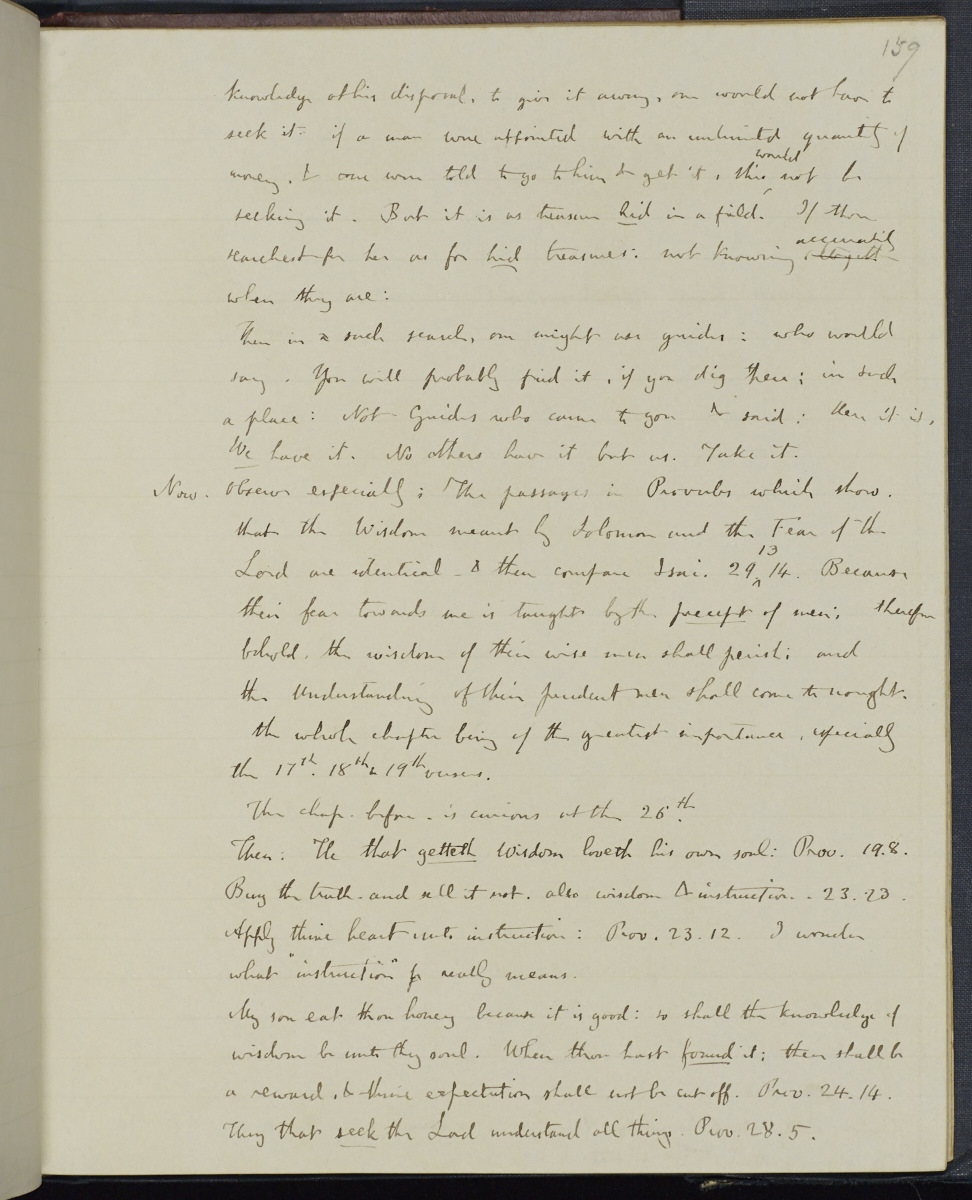 159
knowledge at his disposal, to give it away, one would not have to
seek it: if a man were appointed with an unlimited quantity of
money, & one were told to go to him & get it, this would not be
seeking it. But it is as treasure hid in a field. If thou
searchest for her as for hid treasures: not knowing accurately
where they are:
Then in such search, one might use guides: who would
say. You will probably find it, if you dig here; in such
a place: Not Guides who came to you & said: Here it is,
We have it. No others have it but us. Take it.
Now. Observe especially; The passages in Proverbs which show.
that the Wisdom meant by Solomon and the Fear of the
Lord are identical - & then compare Isai. 29, 13 14. Because
their fear towards me is taught by the precept of men; therefore
behold, the wisdom of their wise men shall perish; and
the understanding of their prudent men shall come to nought.
the whole chapter being of the greatest importance, especially
the 17th. 18th & 19th verses.
The chap. before - is curious at the 26th.
Then: He that getteth Wisdom loveth his own soul: Prov. 19.8.
Buy the truth - and sell it not. also wisdom & instruction. - 23.23.
Apply thine heart unto instruction: Prov. 23.12. I wonder
what "instruction" really means.
My son eat thou honey because it is good: so shall the knowledge of
wisdom be unto thy soul. When thou hast found it; there shall be
a reward, & thine expectation shall not be cut off. Prov. 24.14.
They that seek the Lord understand all things. Prov. 28.5.